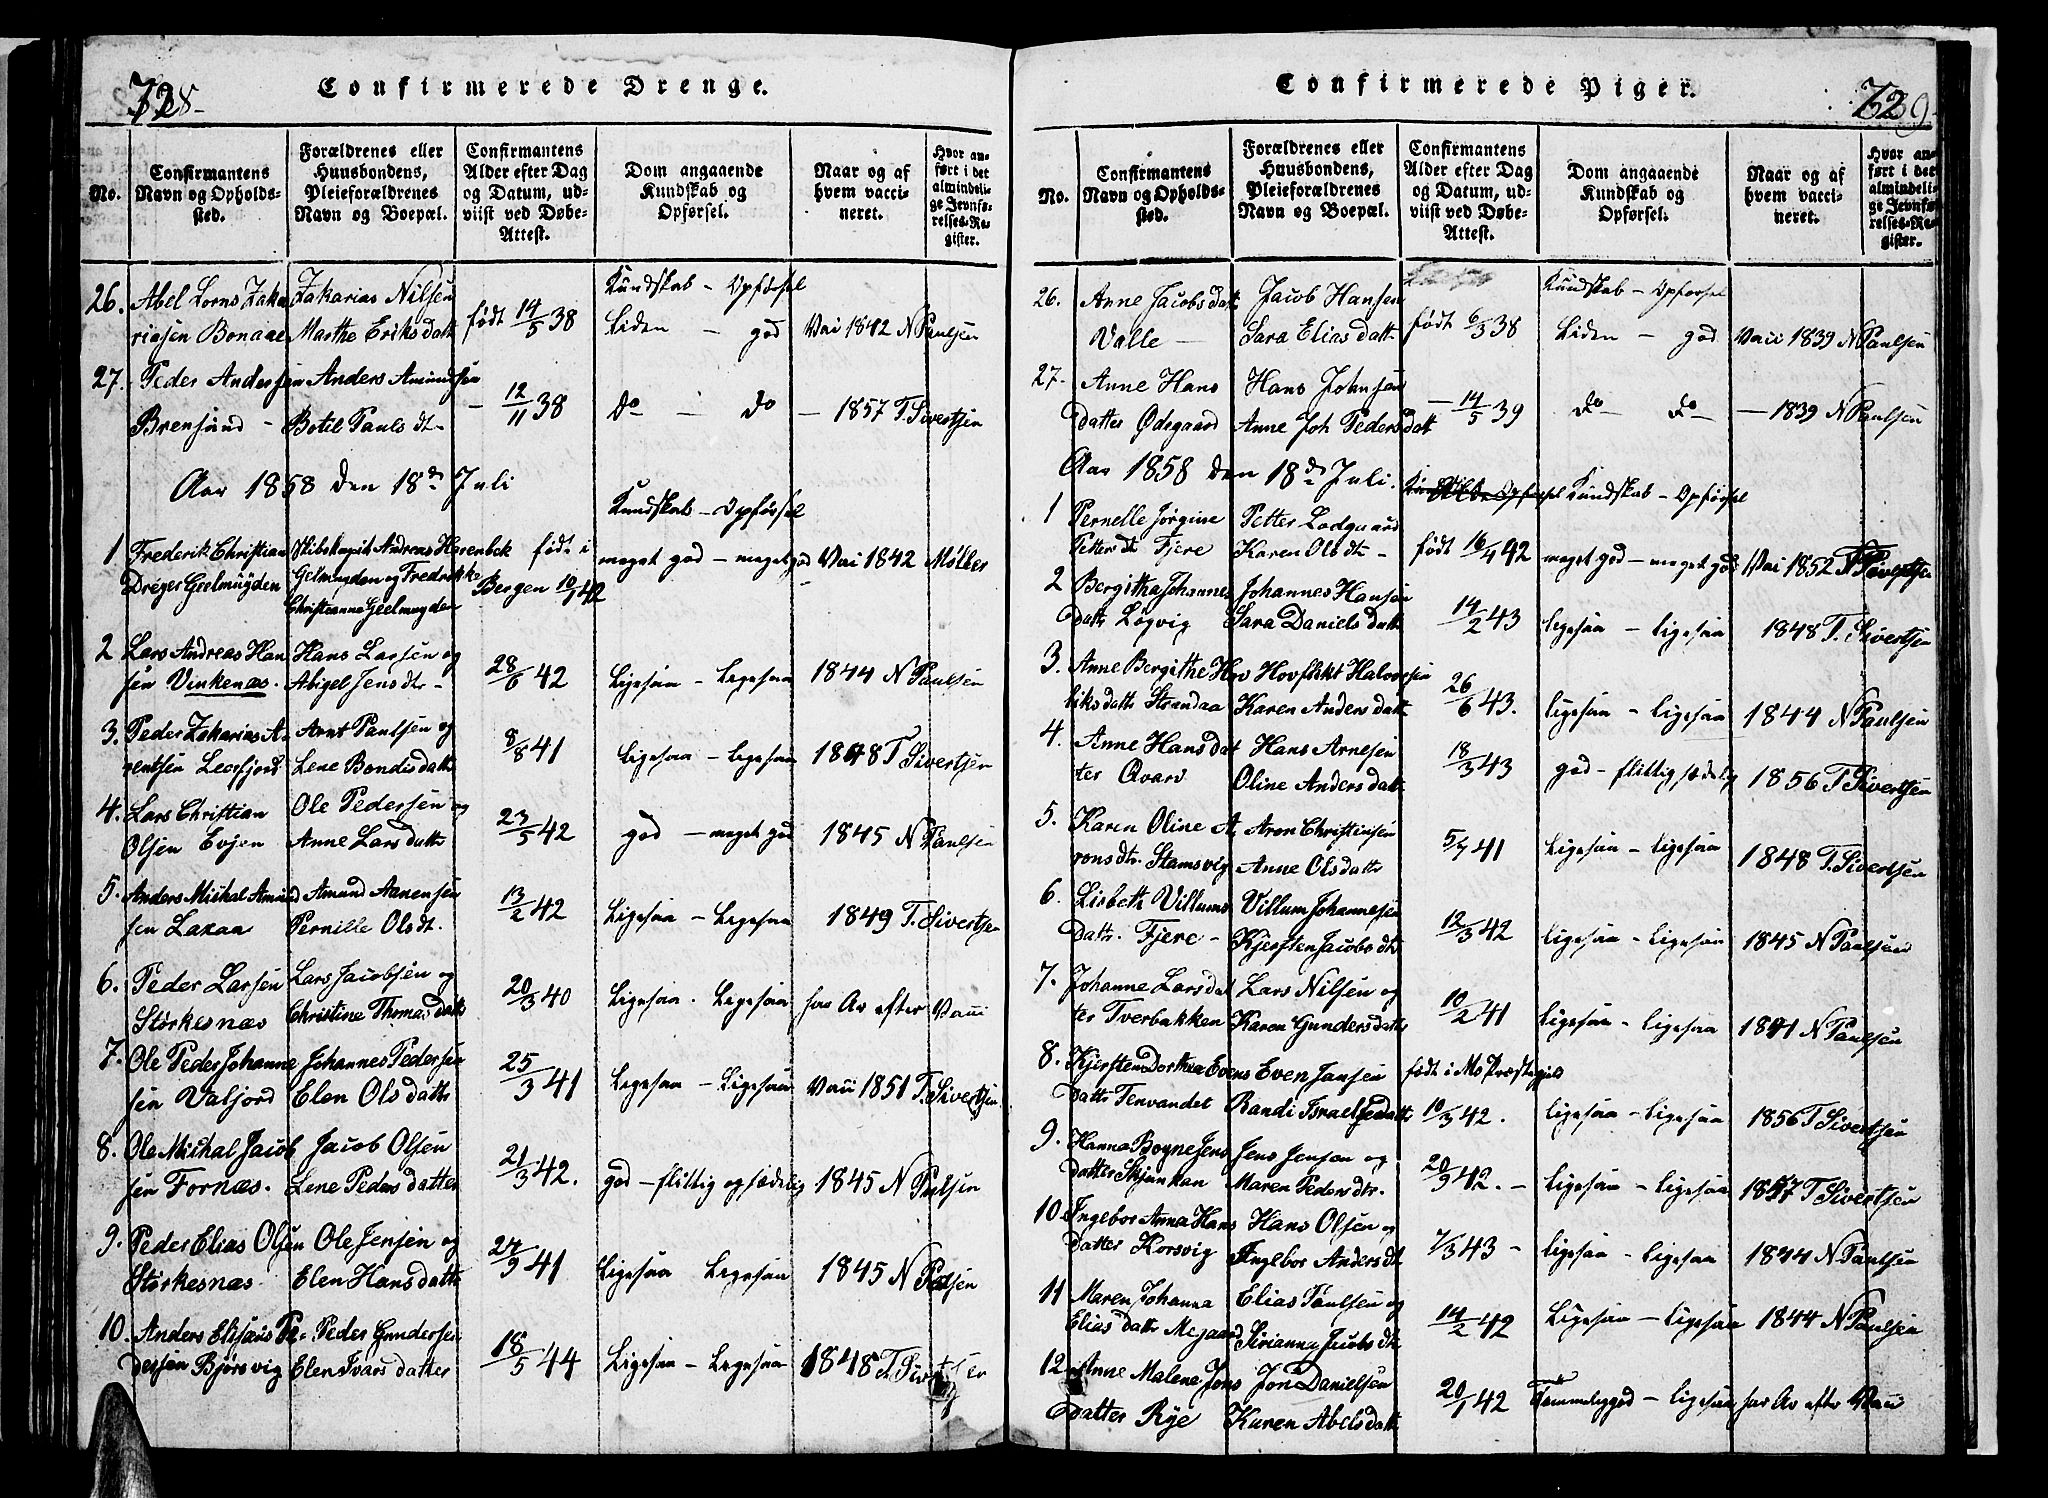 728
Confirmerede Drenge.
No.
Confirmantens Navn og Opholdssted.
Forældrenes eller Huusbondens, Pleieforældrenes Navn og Boepæl.
Confirmantens Alder efter Dag og Datum, udviist ved Døbe-Attest.
Dom angaaende Kundskab og Opførsel.
Naar og af hvem vaccineret.
Hvor anført i det almindelige Jevnførelses-Register.
Kundskab - Opførsel
26. Abel Lorns Zaka Zakarias Nilsen
riasen Bonaae Marthe Eriksdatt født 14/5 38 Liden - god Vai 1842 N Paulsen
27. Peder Andersen Anders Amundsen
Brensund - Botil Pauls dt - 12/11 38 do - do - 1857 T. Sivertsen
Aar 1858 den 18de Juli
Kundskab - Opførsel
1 Frederik Christian Skibskapit Andreas Harenbek født i meget god - meget god Vai 1842 Møller
Dreyer Geelmuyden Gelmuyden og Fredrikke Bergen 10/9 42
Christianna Geelmuyden
2 Lars Andreas Han Hans Larsen og
sen Vinkenæs. Abigel Jens dtr - 28/6 42 Ligesaa - Ligesaa 1844 N Paulsen
3. Peder Zakarias A Arnt Paulsen og
rentsen Leefjord Lene Bondis datt 8/8 41 Ligesaa - Ligesaa 1848 T Sivertsen
4. Lars Christian Ole Pedersen og
Olsen Evjen Anne Lars datt 23/5 42 god - meget god 1845 N Paulsen
5. Anders Mickal Amund Amund Aanensen
sen Laxaa Pernille Olsdt. 13/2 42 Ligesaa - Ligesaa 1849 T. Sivertsen
6. Peder Larsen Lars Jacobsen og
Størkesnæs Christine Thomas datt 20/3 40 Ligesaa - Ligesaa har Ar efter Vacci
7. Ole Peder Johanne Johannes Pedersen
sen Valjord Elen Ols datt 25/3 41 Ligesaa - Ligesaa Vaci 1851 T. Sivertsen
8. Ole Mickal Jacob Jacob Olsen
sen Fornæs. Lene Peders datter 21/3 42. god - flittig og sædelig 1845 N Paulsen
9. Peder Elias Olsen Ole Jensen og
Størkesnæs Elen Hans datt 24/9 41 Ligesaa Ligesaa 1845 N Paulsen
10. Anders Elisæus Pe- Peder Gundersen
dersen Bjørsvig Elen Ivars datter 18/5 44 Ligesaa - Ligesaa 1848 T. Sivertsen
729
Confirmerede Piger.
No.
Confirmantens Navn og Opholdssted.
Forældrenes eller Huusbondens, Pleieforældrenes Navn og Boepæl.
Confirmantens Alder efter Dag og Datum, udviist ved Døbe-Attest.
Dom angaaende Kundskab og Opførsel.
Naar og af hvem vaccineret.
Hvor anført i det almindelige Jevnførelses-Register.
Kundskab - Opførsel
26. Anne Jacobs datt Jacob Hansen
Valle - Sara Elias datt født 6/3 38 Liden - god Vaci 1839 N Paulsen
27. Anne Hans Hans Johnsen
datter Ødegaard Anne Joh Peders datt - 14/5 39 do - do - 1839 N Paulsen
Aar 1858 den 18de Juli. Kundskab - Opførsel
1 Pernelle Jørgine Petter Lodgaard
Petter dt Fjere Karen Ols dt - født 16/4 42 meget god - meget god Vai 1852 T Sivertsen
2 Bergitha Johannes Johannes Hansen
datt Løgvig Sara Daniels datt 14/2 43 Ligesaa - Ligesaa 1848 T. Sivertsen
3. Anne Bergithe Hov Hovflekt Halvorsen
liks datt Strandaa Karen Anders datt 26/6 43. Ligesaa - Ligesaa 1844 N Paulsen
4. Anne Hans dat Hans Arnesen
ter Qvarv Oline Anders datt 18/3 43 god - flittig sædelig 1856 T Sivertsen
5. Karen Oline A Aron Christensen
rons dtr. Stamsvig Anne Ols datt 5/7 41 Ligesaa - Ligesaa 1848 T. Sivertsen
6. Lisbeth Villums Villum Johannesen
datt. Fjere - Kjersten Jacobs dt 12/3 42 Ligesaa - Ligesaa 1845 N Paulsen
7. Johanne Lars dat Lars Nilsen og
ter Tverbakken Karen Gunders datt 10/2 41 Ligesaa - Ligesaa 1841 N Paulsen
8. Kjersten Dorthea Evens Even Jansen født i Mo Præstegjeld
datt Tenvandet Randi Israelsdatt 10/3 42. Ligesaa - Ligesaa 1856 T Sivertsen
9. Hanna Bogne Jens Jens Jensen og
datter Skjunkan Maren Peders dtr. 20/9 42. - Ligesaa - Ligesaa 1857 T Sivertsen
10. Ingebor Anna Hans Hans Olsen og
datter Korsvig Ingebor Anders dt 7/3 43 - Ligesaa - Ligesaa 1844 N Paulsen
11 Maren Johanna Elias Paulsen og
Elias datt Megaard Sirianna Jacobs dt 14/2 42 Ligesaa - Ligesaa 1844 N Paulsen
12. Anne Malene Jons Jon Danielsen
datter Rye Karen Abels datt 20/1 42 Temmelig god - Ligesaa har Ar efter Vaci